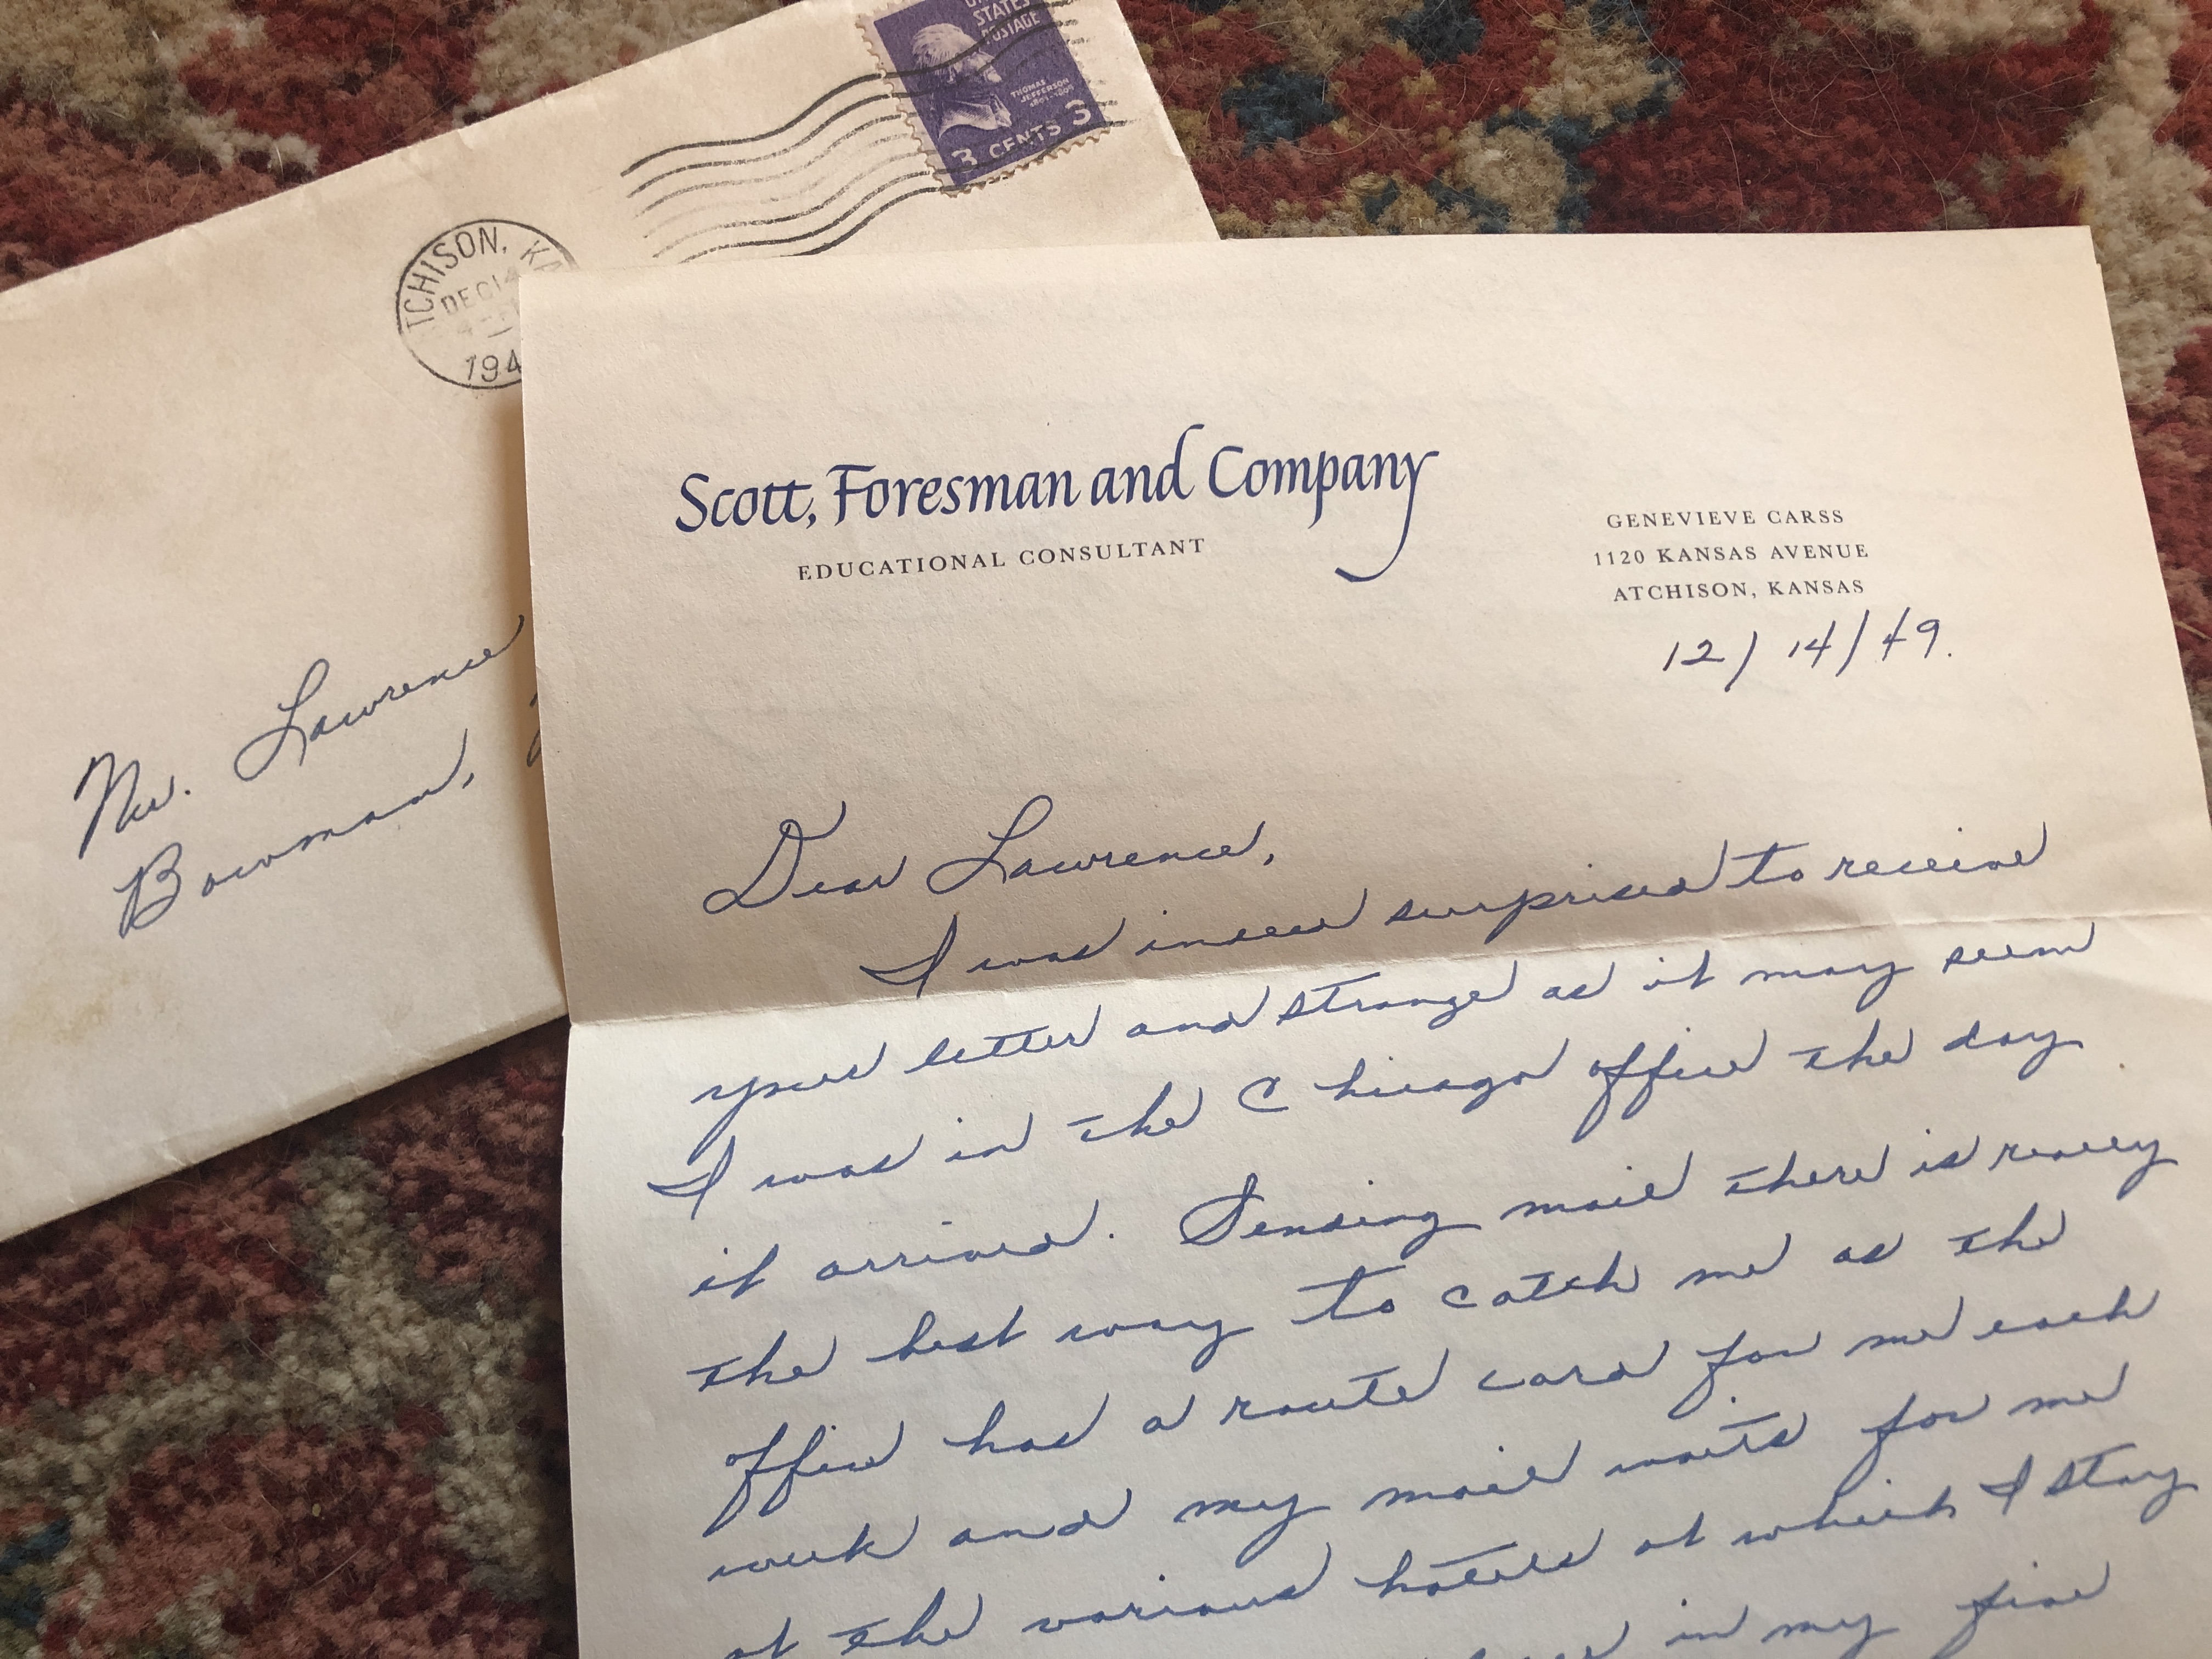 STATES
POSTAGE
THOMAS
JEFFERSON
1801-1809
3 CENTS 3
TCHISON, KA
DEC 14
194
Mr. Lawrence
Bowman,
Scott, Foresman and Company
EDUCATIONAL CONSULTANT
GENEVIEVE CARSS
1120 KANSAS AVENUE
ATCHISON, KANSAS
12/14/49.
Dear Lawrence,
I was indeed surprised to receive
your letter and strange as it may seem
I was in the Chicago office the day
it arrived. Sending mail there is really
the best way to catch me as the
office has a route card for me each
week and my mail waits for me
at the various hotels at which I stay
in my five